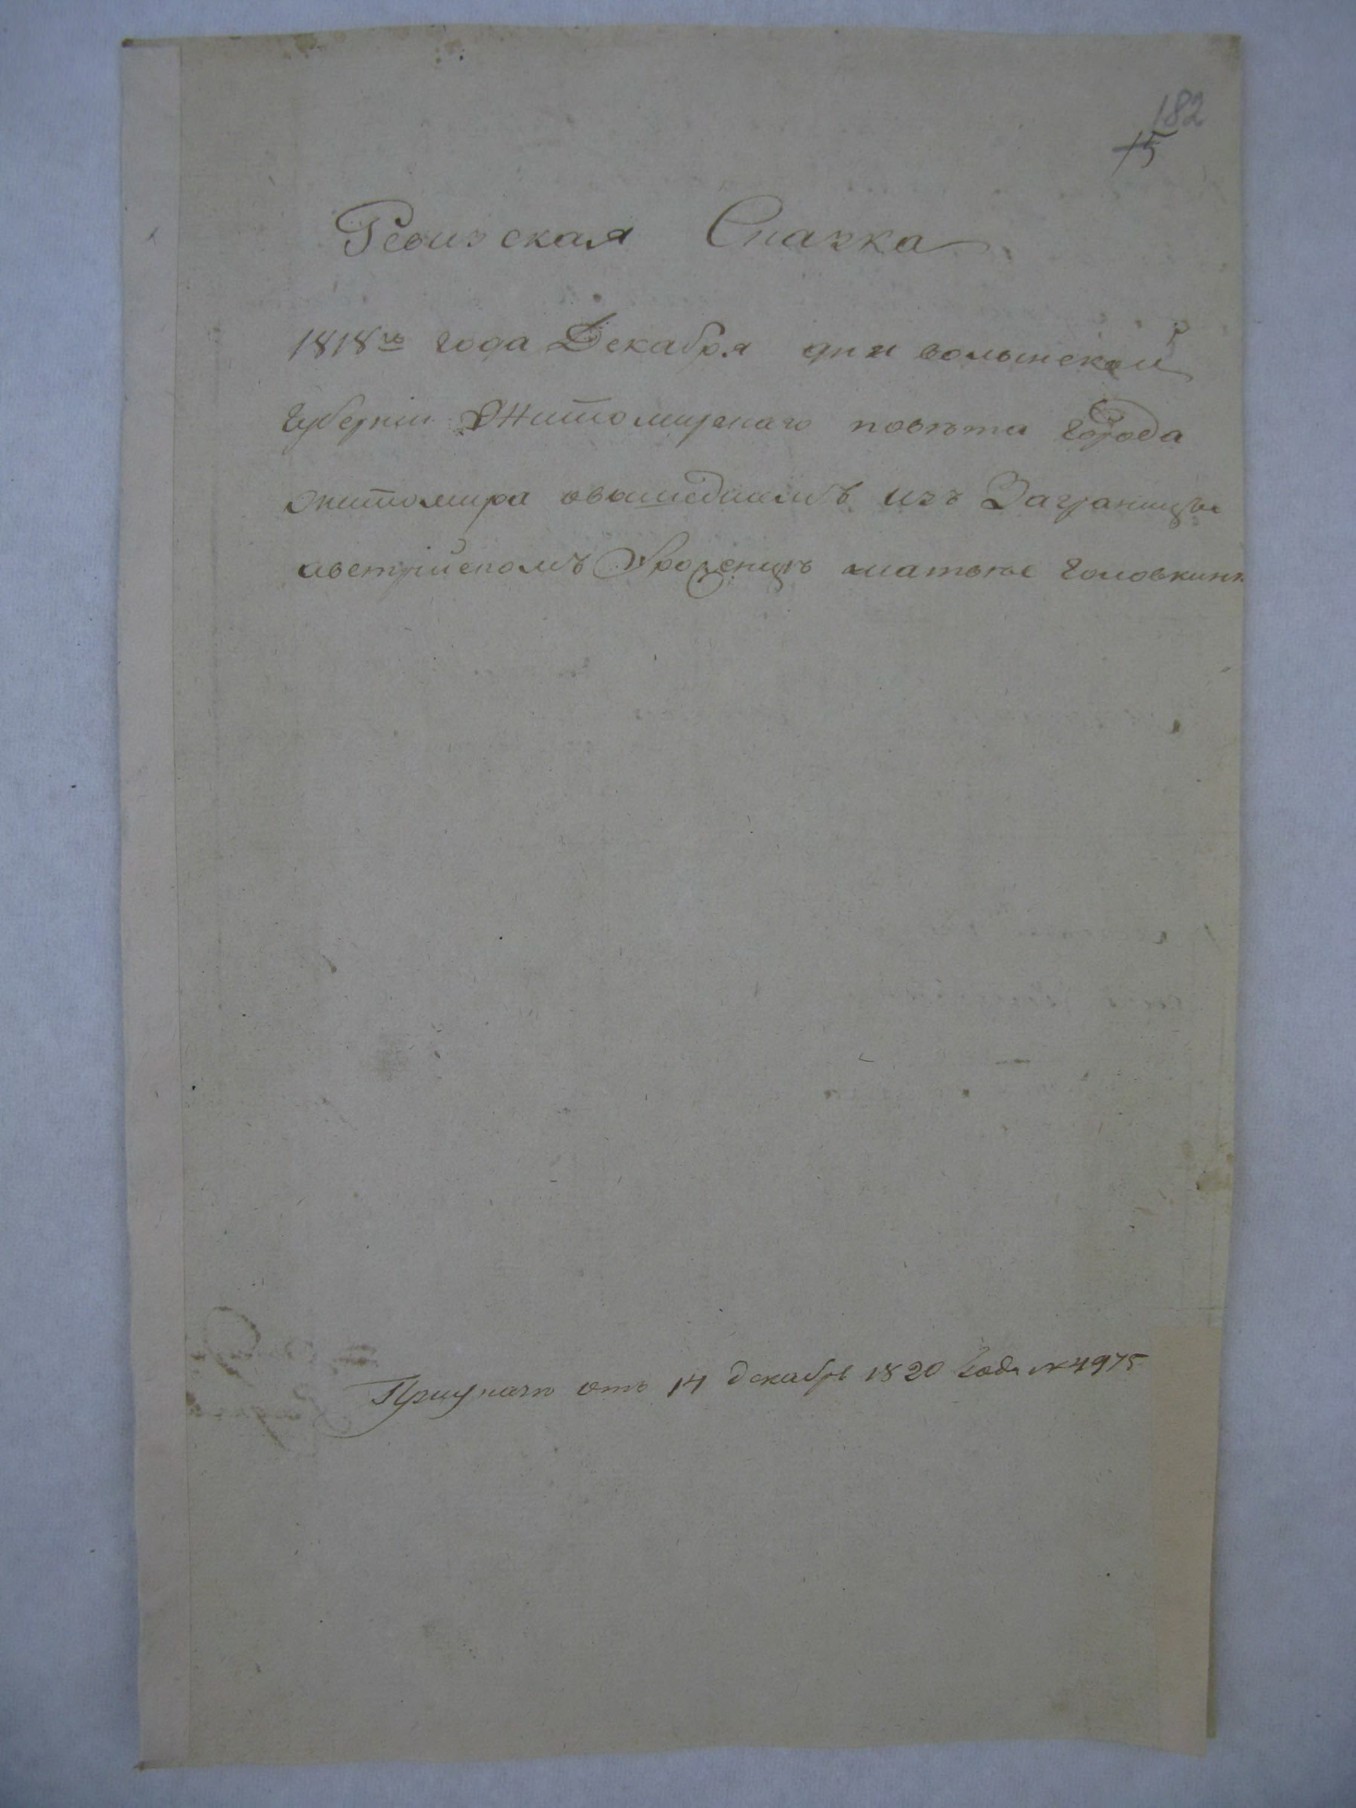 182
15
Ревизская Сказка
1818го года Декабря дня волынской
губернии Житомирского повета города
житомира овышедшемъ изъ Заграницы
австрийскомъ уроженце матвее головкин
от 14 декабря 1820 года № 4975